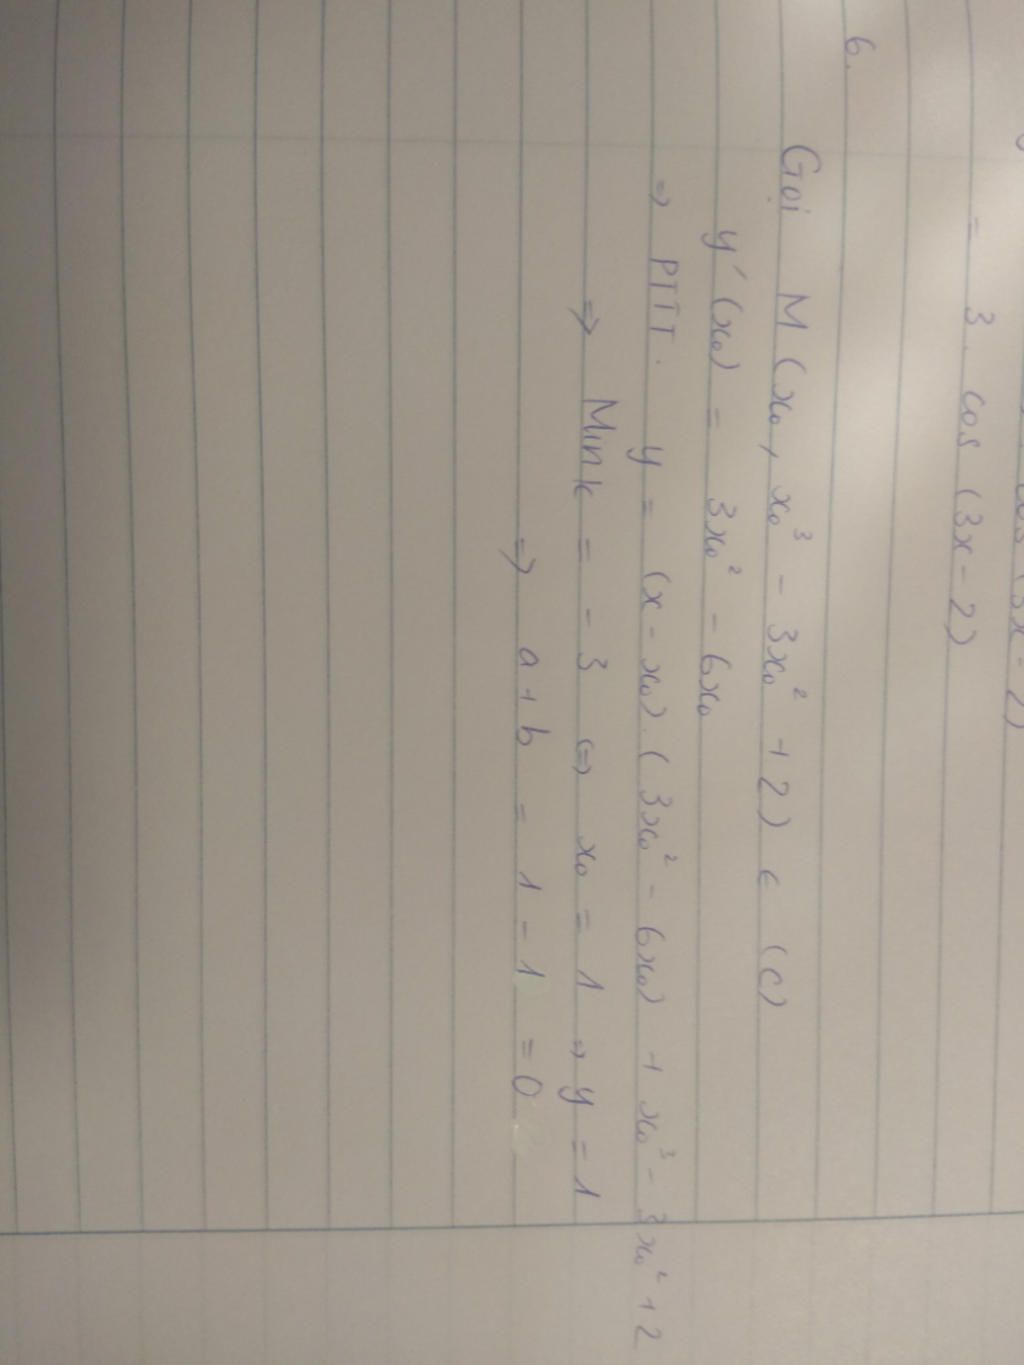 cos (3x - 2)
= 3. cos (3x - 2)
6.
Gọi M (x₀, x₀³ - 3x₀² + 2) ∈ (C)
y' (x₀) = 3x₀² - 6x₀
⇒ PTTT. y = (x - x₀).(3x₀² - 6x₀) + x₀³ - 3x₀² + 2
⇒ Min k = -3 ⇔ x₀ = 1 ⇒ y = 1
⇒ a + b = 1 - 1 = 0